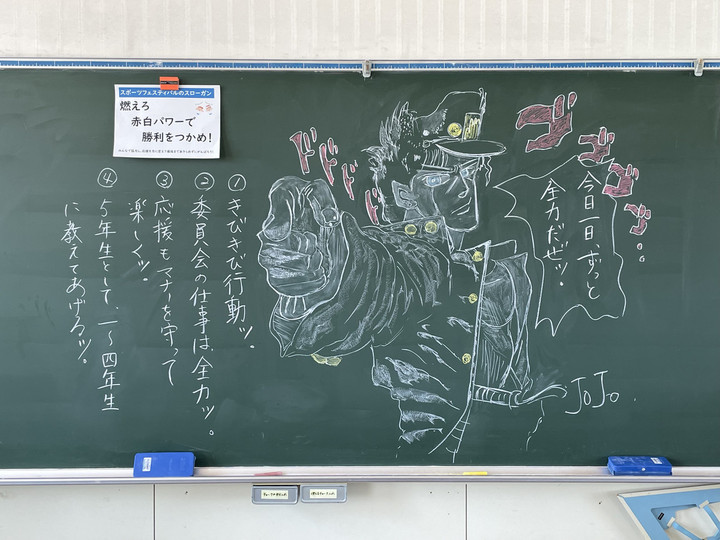 スポーツフェスティバルのスローガン
燃えろ
赤白パワーで
勝利をつかめ！
ゴゴゴゴ...
今日一日、ずっと
全力だぜッ！
ドドドド
①きびきび行動ッ。
②委員会の仕事は、全力ッ。
③応援もマナーを守って
楽しくッ。
④5年生として、一〜四年生
に教えてあげろッ。
JoJo.